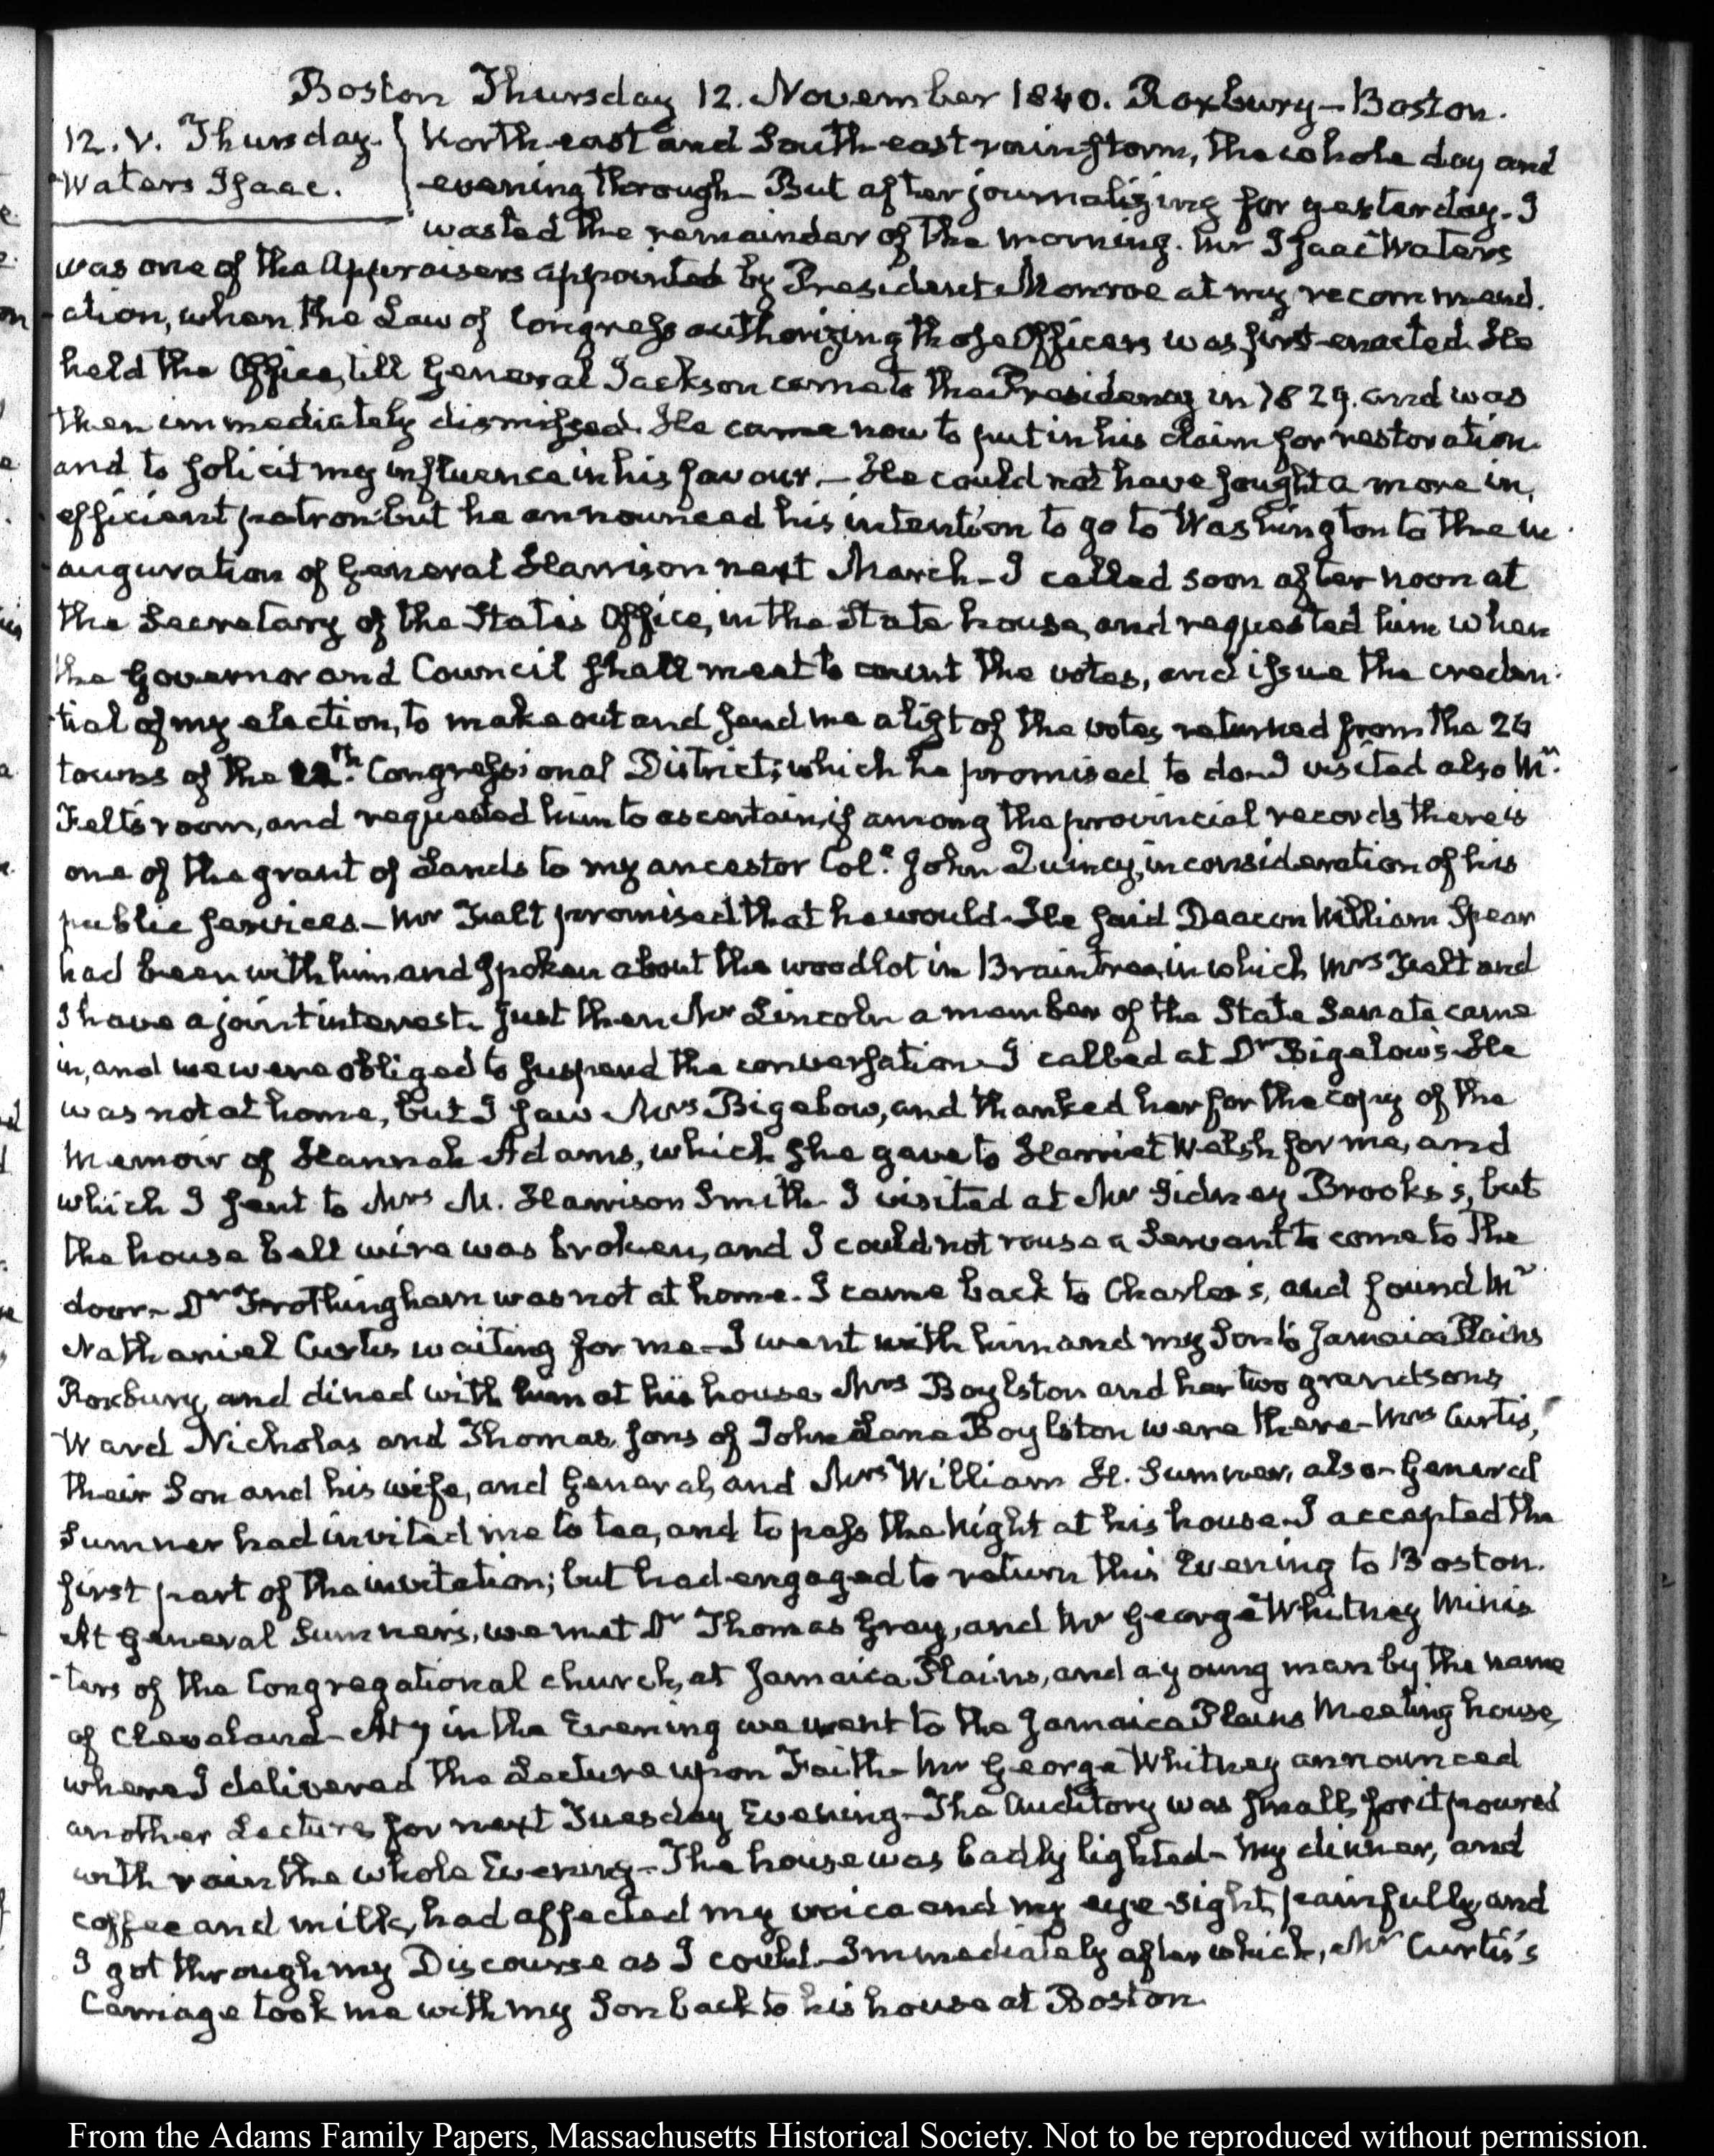 Boston Thursday 12. November 1840. Roxbury – Boston.
12. V. Thursday.
Waters Isaac.
North-east and South-east rainstorm, the whole day and
evening through – But after journalizing for yesterday. I
wasted the remainder of the morning. Mr Isaac Waters
was one of the Appraisers appointed by President Monroe at my recommend.
ation, when the Law of Congress authorizing those Officers was first enacted. He
held the Office, till General Jackson came to the Presidency in 1829. and was
then immediately dismissed. He came now to put in his claim for restoration
and to solicit my influence in his favour. – He could not have sought a more in,
efficient patron but he announced his intention to go to Washington to the in
auguration of General Harrison next March – I called soon after noon at
the Secretary of the State's Office, in the State house, and requested him when
the Governor and Council shall meet to count the votes, and issue the creden
tial of my election, to make out and send me a list of the votes returned from the 26
towns of the 12th. Congressional District; which he promised to do – I visited also Mr.
Felt's room, and requested him to ascertain, if among the provincial records there is
one of the grant of Lands to my ancestor Coll. John Quincy, in consideration of his
public services – Mr Felt promised that he would. He said Deacon William Spear
had been with him and spoken about the woodlot in Braintree, in which Mrs Felt and
I have a joint interest. Just then Mr Lincoln a member of the State Senate came
in, and we were obliged to suspend the conversation – I called at Dr Bigelow's – He
was not at home, but I saw Mrs Bigelow, and thanked her for the copy of the
Memoir of Hannah Adams, which she gave to Harriet Welsh for me, and
which I sent to Mrs M. Harrison Smith – I visited at Mr Sidney Brooks's, but
the house bell wire was broken, and I could not rouse a Servant to come to the
door – Dr Frothingham was not at home. I came back to Charles's, and found Mr
Nathaniel Curtis waiting for me – I went with him and my Son to Jamaica Plains
Roxbury, and dined with him at his house. Mrs Boylston and her two grandsons
Ward Nicholas and Thomas, sons of John Lane Boylston were there – Mrs Curtis,
their Son and his wife, and General, and Mrs William H. Sumner, also – General
Sumner had invited me to tea, and to pass the Night at his house – I accepted the
first part of the invitation; but had engaged to return this Evening to Boston.
At General Sumner's, we met Dr Thomas Gray, and Mr George Whitney Minis
ters of the Congregational church, at Jamaica Plains, and a young man by the name
of Cleveland – At 7 in the Evening we went to the Jamaica Plains Meeting house,
where I delivered the Lecture upon Faith – Mr George Whitney announced
another Lecture for next Tuesday Evening – The Auditory was small, for it poured
with rain the whole Evening – The house was badly lighted – My dinner, and
coffee and milk, had affected my voice and my eye-sight, painfully, and
I got through my Discourse as I could. Immediately after which, Mr Curtis's
Carriage took me with my Son back to his house at Boston.
From the Adams Family Papers, Massachusetts Historical Society. Not to be reproduced without permission.